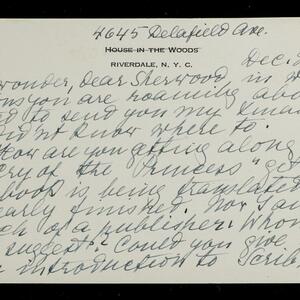 4645 Delafield Ave.
HOUSE IN THE WOODS
RIVERDALE, N. Y. C.
Dec. 2
wonder, Dear Sherwood in w
ons you are roaming abou
ed to send you my Xmas
didn't know where to.
How are you getting along
Cry of the Princess" ge
book is being translated
early finished. Now I am
ch of a publisher. Whom
suggest? Could you give
introduction to Scrib